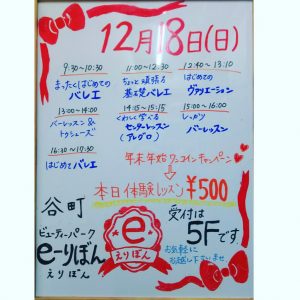 12月18日(日)
9:30~10:30
まったくはじめての
バレエ
11:00~12:30
ちょっと頑張る
基礎バレエ
12:40~13:10
はじめての
ヴァリエーション
13:00~14:00
バーレッスン&
トゥシューズ
14:15~15:15
くわしく学べる
センターレッスン
(アレグロ)
15:00~16:00
しっかり
バーレッスン
16:30~17:30
はじめてバレエ
年末年始ワンコインキャンペーン
本日体験レッスン ¥500
谷町
ビューティーパーク
e-りぼん
えりぼん
e
えりぼん
受付は
5Fです。
お気軽に
お越し下さいませ。